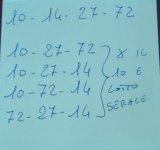 10-14-27-72
10-27-72
10-27-14
10-72-14
72-27-14
X IL
10 E
LOTTO
SERALE